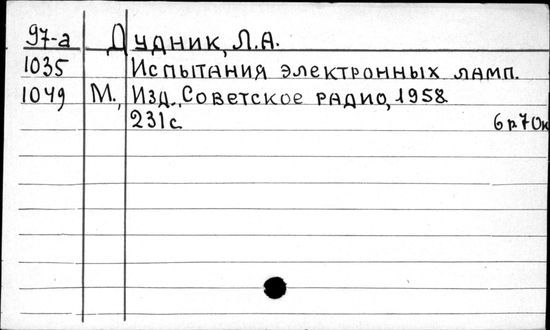 97-а Дудник, Л.А.
1035 Испытания электронных ламп.
1049 М., Изд. "Советское радио, 1958
231с. 6р70к